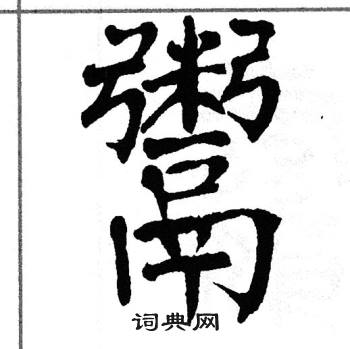 鬻
词典网